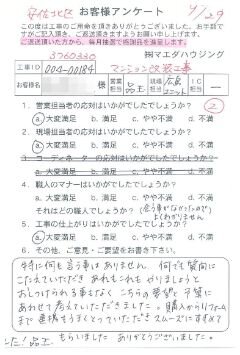 安佐北区 お客様アンケート 4/29
この度は工事のご用命を頂きありがとうございました。お手数で
すがご記入頂き、ご返送頂きますようお願い申し上げます。
ご返送頂いた方から、毎月抽選で感謝状を進呈します。
3760330 ㈱マエダハウジング
工事ID 004-00184 マンション改装工事
お客様名 様 営業 品工 現場 広島ユニット IC ー
1. 営業担当者の応対はいかがでしたでしょうか? ②
a.大変満足 b.満足 c.やや不満 d.不満
2. 現場担当者の応対はいかがでしたでしょうか?
a.大変満足 b.満足 c.やや不満 d.不満
3. コーディネーターの応対はいかがでしたでしょうか?
a.大変満足 b.満足 c.やや不満 d.不満
4. 職人のマナーはいかがでしたでしょうか?
a.大変満足 b.満足 c.やや不満 d.不満
それはどの職人でしょうか? (会う事がなかったので よくわかりません)
5. 工事の仕上がりはいかがでしたでしょうか?
a.大変満足 b.満足 c.やや不満 d.不満
6. その他、ご意見・ご要望をお書き下さい。
特に何も言う事はありません。何でも質問に
こたえていただき あれもこれもやりましょうと
おしつけられる事もなく こちらの要望と予算に
あわせて考えていただきました。購入からリフォーム
まで連携もうまくとっていただき スムーズにすすめて
もらいました ありがとうございました。